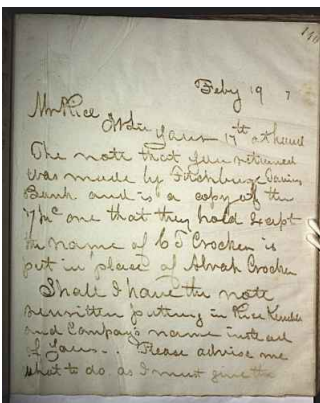 140
Feby 19 7
Mr Rice
Dr Sir Yours 17th at hand
The note that you returned
was made by Fitchburg Savins
Bank and is a copy of the
7 Mc one that they hold except
the name of C T Crocker is
put in place of Alvah Crocker
Shall I have the note
rewritten putting in Rice Kendall
and Company's name instead
of yours. Please advise me
what to do as I must give the